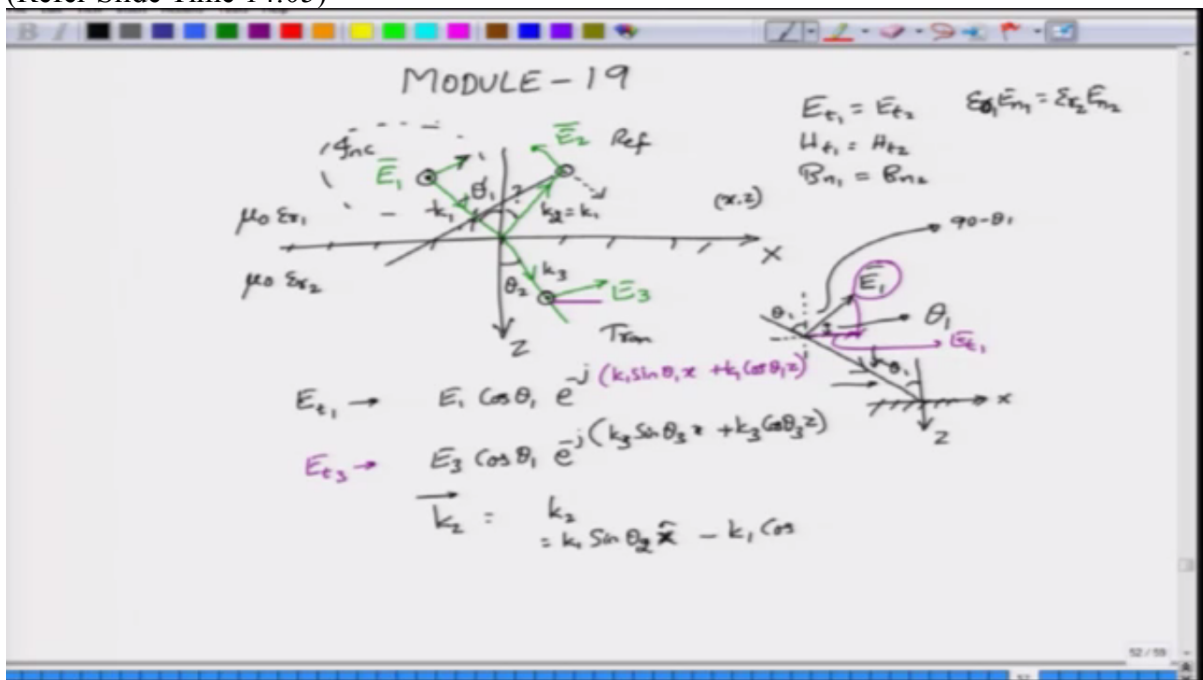 (Refer Slide Time 14:05)
B I
MODULE - 19
E_t1 = E_t2 ε_r1 E_n1 = ε_r2 E_n2
H_t1 = H_t2
B_n1 = B_n2
Inc
E̅_1
θ_1
?
E̅_2 Ref
k_1
k_2 = k_1
(x,z)
μ_0 ε_r1
X
μ_0 ε_r2
θ_2
k_3
E̅_3
Z
Tran
90-θ_1
E̅_1
θ_1
θ_1
E_t1
k
θ_1
x
z
E_t1 → E_1 Cosθ_1 e^-j(k_1 sinθ_1 x + k_1 Cosθ_1 z)
E_t3 → E_3 Cosθ_1 e^-j(k_3 Sinθ_3 x + k_3 Cosθ_3 z)
k_2 = k_2
= k_1 Sin θ_2 x̂ - k_1 Cos
52 / 59